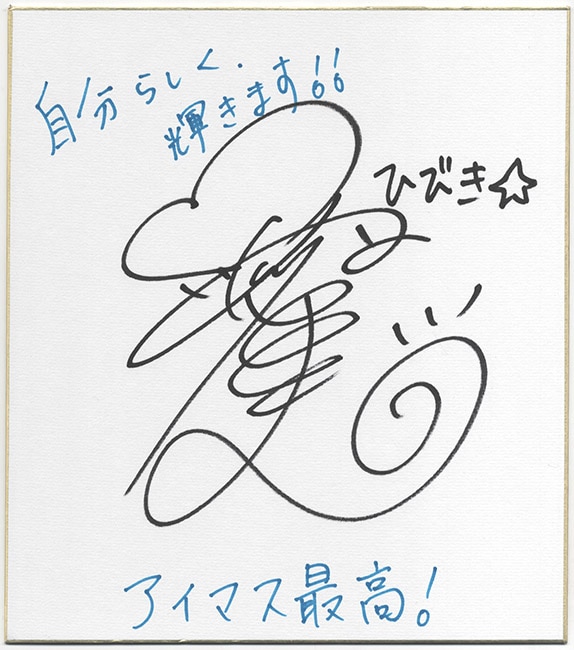 自分らしく．
輝きます!!
ひびき☆
アイマス最高!